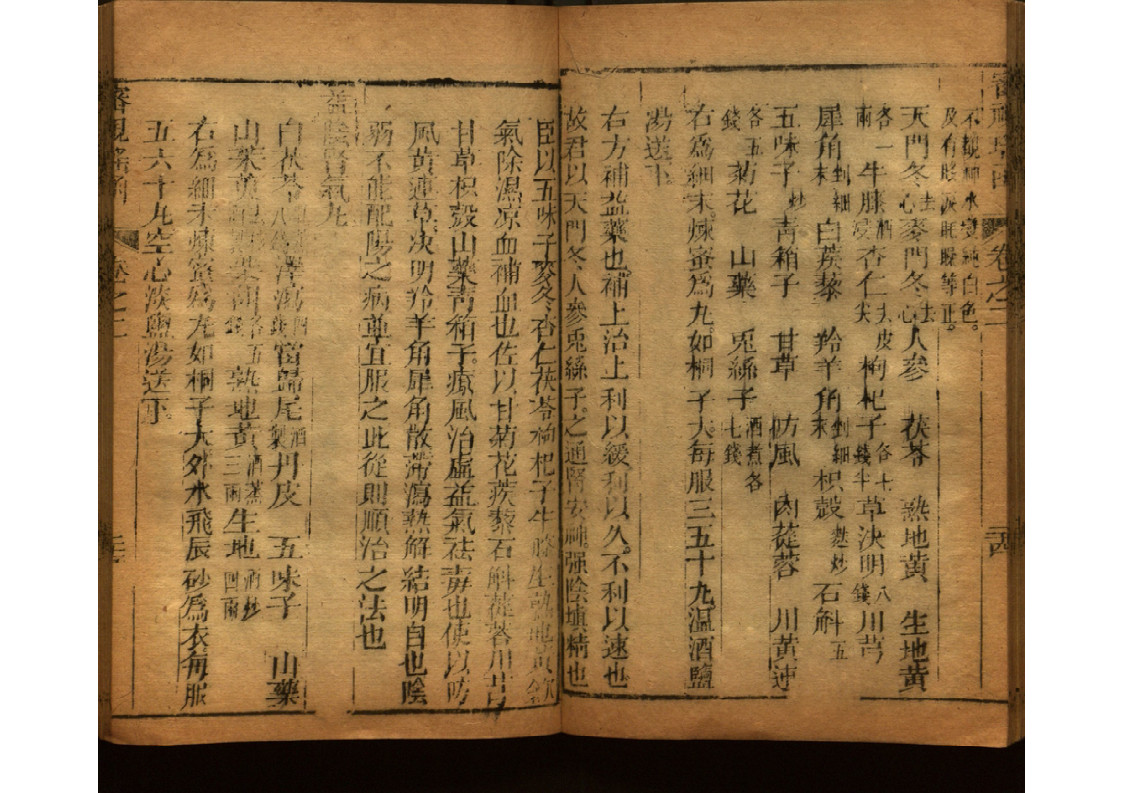 審視瑤函 卷之二 二十四
不覩神水變純白色。
及有眵淚眊矂等正。
天門冬去心 麥門冬去心 人參 茯苓 熟地黃 生地黃
各一兩 牛膝酒浸 杏仁去皮尖 枸杞子各七錢半 草決明八錢 川芎
犀角剉細末 白蒺藜 羚羊角剉細末 枳殼麩炒 石斛五
五味子炒 青箱子 甘草 防風 肉蓯蓉 川黃連
各五錢 菊花 山藥 兎絲子酒煮各七錢
右爲細末。煉蜜爲丸。如桐子大。每服三五十丸。温酒鹽
湯送下。
右方補益藥也。補上治上利以緩。利以久。不利以速也
故君以天門冬。人參兎絲子。之通腎安神强陰塡精也
臣以五味子麥冬杏仁茯苓枸杞子牛膝生熟地黃斂
氣除濕凉血補血也佐以甘菊花蒺藜石斛蓯蓉川芎
甘草枳殼山藥青箱子。療風治虛益氣祛毒也使以防
風黃連草決明羚羊角犀角散滯瀉熱解結明目也陰
弱不能配陽之病並宜服之此從則順治之法也
益陰腎氣丸
白茯苓八錢 澤瀉四錢 當歸尾酒製 丹皮 五味子 山藥
山茱萸 柴胡各五錢 熟地黃酒蒸三兩 生地酒炒四兩
右爲細末煉蜜爲丸如桐子大外水飛辰砂爲衣每服
五六十丸空心淡鹽湯送下
審視瑤函 卷之二